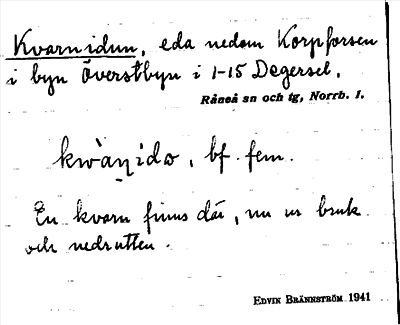 Kvarnidun, eda nedom Korpforsen
i byn Överstbyn i 1-15 Degersel.
Råneå sn och tg, Norrb. l.
kwàṇidə, bf. fem.
En kvarn finns där, nu ur bruk
och nedrutten.
EDVIN BRÄNNSTRÖM 1941